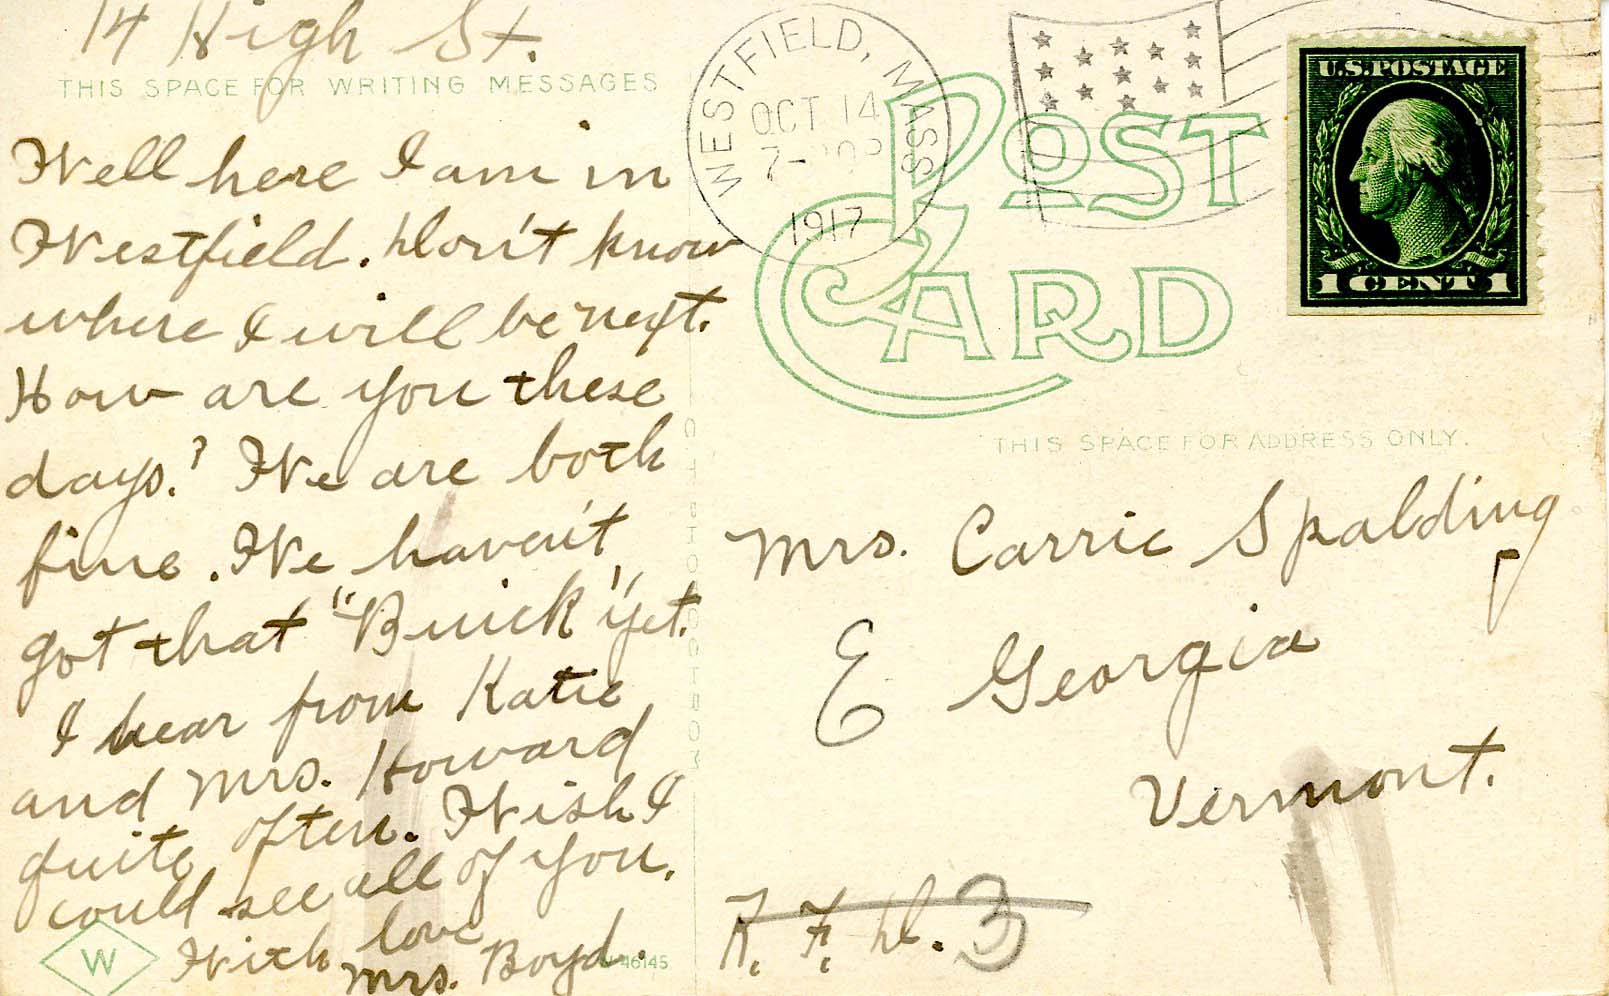 14 High St.
THIS SPACE FOR WRITING MESSAGES
Well here I am in
Westfield. Don't know
where I will be next.
How are you these
days? We are both
fine. We haven't
got that "Buick" yet.
I hear from Katie
and Mrs. Howard
quite often. Wish I
could see all of you.
With love
Mrs. Boyd.
W
46145
WESTFIELD, MASS
OCT 14
7-
1917
POST
CARD
U.S. POSTAGE
1 CENT 1
THIS SPACE FOR ADDRESS ONLY.
Mrs. Carrie Spalding
E Georgia
Vermont.
R. F. D. 3